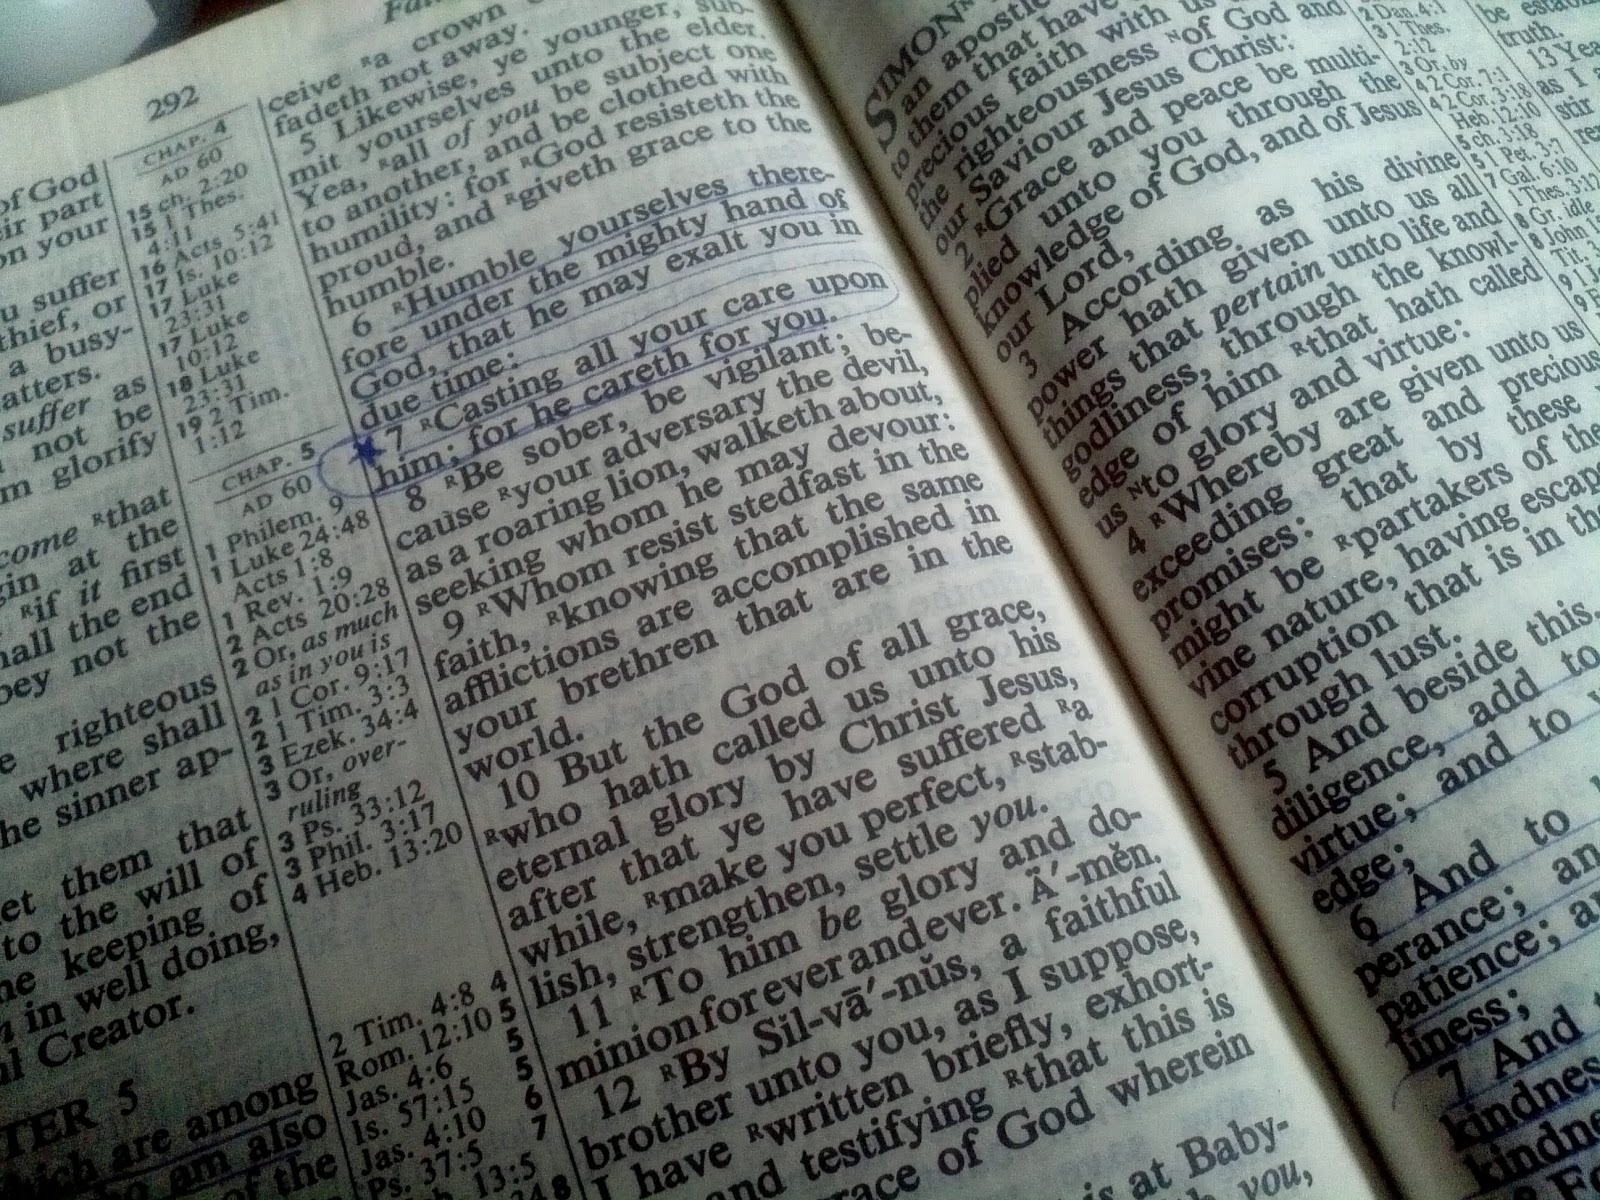 292
of God
eir part
on your
u suffer
thief, or
a busy-
atters.
suffer as
not be
m glorify
come Rthat
gin at the
Rif it first
hall the end
bey not the
righteous
where shall
he sinner ap-
et them that
to the will of
he keeping of
in well doing,
Creator.
TER 5
which are among
am also
of the
CHAP. 4
AD 60
15 ch. 2:20
15 1 Thes.
4:11
16 Acts 5:41
17 Is. 10:12
17 Luke
23:31
17 Luke
10:12
18 Luke
23:31
19 2 Tim.
1:12
CHAP. 5
AD 60
1 Philem. 9
1 Luke 24:48
Acts 1:8
1 Rev. 1:9
2 Acts 20:28
2 Or, as much
as in you is
2 1 Cor. 9:17
2 1 Tim. 3:3
3 Ezek. 34:4
3 Or, over-
ruling
3 Ps. 33:12
3 Phil. 3:17
4 Heb. 13:20
2 Tim. 4:8 4
Rom. 12:10 5
Jas. 4:6 5
Is. 57:15 5
Jas. 4:10 6
Ps. 37:5 7
13:5
ceive Ra crown
fadeth not away.
5 Likewise, ye younger, sub-
mit yourselves unto the elder.
Yea, Rall of you be subject one
to another, and be clothed with
humility: for RGod resisteth the
proud, and Rgiveth grace to the
humble.
6 RHumble yourselves there-
fore under the mighty hand of
God, that he may exalt you in
due time:
7 RCasting all your care upon
him; for he careth for you.
8 RBe sober, be vigilant; be-
cause Ryour adversary the devil,
as a roaring lion, walketh about,
seeking whom he may devour:
9 RWhom resist stedfast in the
faith, Rknowing that the same
afflictions are accomplished in
your brethren that are in the
world.
10 But the God of all grace,
Rwho hath called us unto his
eternal glory by Christ Jesus,
after that ye have suffered Ra
while, Rmake you perfect, Rstab-
lish, strengthen, settle you.
11 RTo him be glory and do-
minion for ever and ever. Ä′-mĕn.
12 RBy Sil-vā′-nŭs, a faithful
brother unto you, as I suppose,
I have Rwritten briefly, exhort-
and testifying Rthat this is
race of God wherein
is at Baby-
you,
SIMON
an apostle
to them that have
precious faith with us
the righteousness Nof God and
our Saviour Jesus Christ:
2 RGrace and peace be multi-
plied unto you through the
knowledge of God, and of Jesus
our Lord,
3 According as his divine
power hath given unto us all
things that pertain unto life and
godliness, through the knowl-
edge of him Rthat hath called
us Nto glory and virtue:
4 RWhereby are given unto us
exceeding great and precious
promises: that by these
might be Rpartakers of the
vine nature, having escap
corruption that is in the
through lust.
5 And beside this,
diligence, add to
virtue; and to
edge;
6 And to
perance; an
patience; a
liness;
7 And
kindness
kindne
2 Dan. 4:1
3 1 Thes.
2:12
3 Or, by
4 2 Cor. 7:1
4 2 Cor. 3:18
Heb. 12:10
5 ch. 3:18
5 1 Pet. 3:7
7 Gal. 6:10
1 Thes. 3:12
8 Gr. idle
8 John
Tit. 3
be establ
truth.
13 Yea
as I
stir